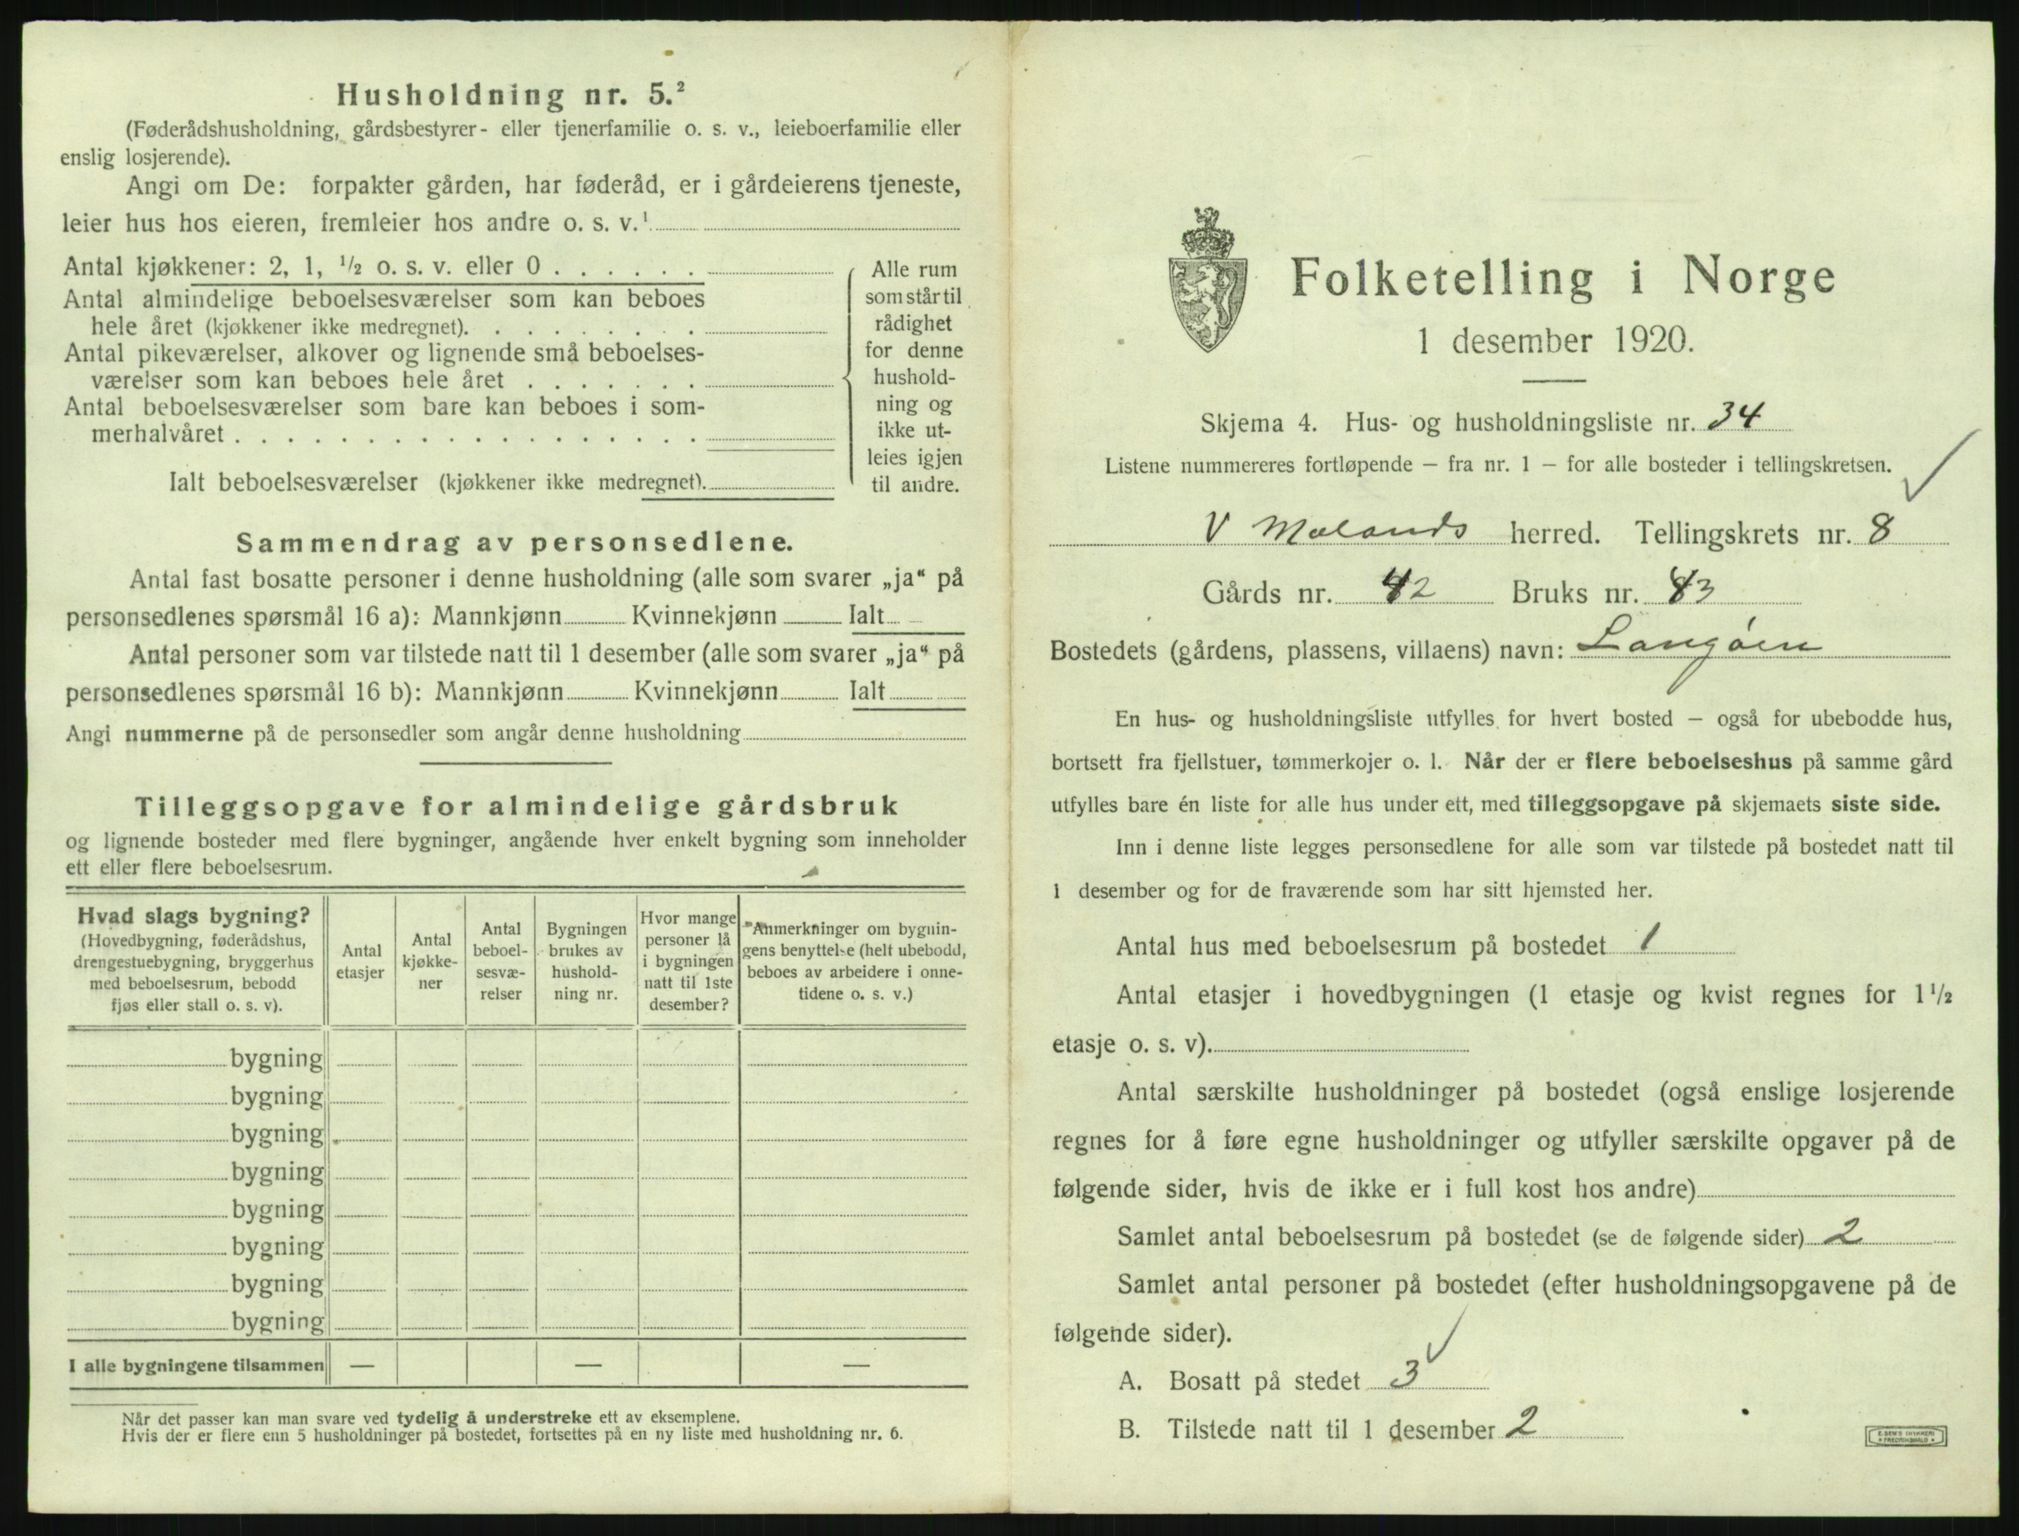 Husholdning nr. 5.²
(Føderådshusholdning, gårdsbestyrer- eller tjenerfamilie o. s. v., leieboerfamilie eller
enslig losjerende).
Angi om De: forpakter gården, har føderåd, er i gårdeierens tjeneste,
leier hus hos eieren, fremleier hos andre o. s. v.¹
Antal kjøkkener: 2, 1, ½ o. s. v. eller 0 . . . . . .
Antal almindelige beboelsesværelser som kan beboes
hele året (kjøkkener ikke medregnet). . . . . . . . .
Antal pikeværelser, alkover og lignende små beboelses-
værelser som kan beboes hele året . . . . . . .
Antal beboelsesværelser som bare kan beboes i som-
merhalvåret . . . . . . . . . . . . . . . . . .
Ialt beboelsesværelser (kjøkkener ikke medregnet).
Alle rum
som står til
rådighet
for denne
hushold-
ning og
ikke ut-
leies igjen
til andre.
Sammendrag av personsedlene.
Antal fast bosatte personer i denne husholdning (alle som svarer „ja“ på
personsedlenes spørsmål 16 a): Mannkjønn Kvinnekjønn Ialt
Antal personer som var tilstede natt til 1 desember (alle som svarer „ja“ på
personsedlenes spørsmål 16 b): Mannkjønn Kvinnekjønn Ialt
Angi nummerne på de personsedler som angår denne husholdning
Tilleggsopgave for almindelige gårdsbruk
og lignende bosteder med flere bygninger, angående hver enkelt bygning som inneholder
ett eller flere beboelsesrum.
Hvad slags bygning?
(Hovedbygning, føderådshus,
drengestuebygning, bryggerhus
med beboelsesrum, bebodd
fjøs eller stall o. s. v).
Antal
etasjer
Antal
kjøkke-
ner
Antal
beboel-
sesvæ-
relser
Bygningen
brukes av
hushold-
ning nr.
Hvor mange
personer lå
i bygningen
natt til 1ste
desember?
Anmerkninger om bygnin-
gens benyttelse (helt ubebodd,
beboes av arbeidere i onne-
tidene o. s. v.)
bygning
bygning
bygning
bygning
bygning
bygning
bygning
bygning
I alle bygningene tilsammen — — —
Når det passer kan man svare ved tydelig å understreke ett av eksemplene.
Hvis der er flere enn 5 husholdninger på bostedet, fortsettes på en ny liste med husholdning nr. 6.
Folketelling i Norge
1 desember 1920.
Skjema 4. Hus- og husholdningsliste nr. 34
Listene nummereres fortløpende – fra nr. 1 – for alle bosteder i tellingskretsen.
V Molands herred. Tellingskrets nr. 8
Gårds nr. 42 Bruks nr. 43
Bostedets (gårdens, plassens, villaens) navn: Langøen
En hus- og husholdningsliste utfylles for hvert bosted – også for ubebodde hus,
bortsett fra fjellstuer, tømmerkojer o. l. Når der er flere beboelseshus på samme gård
utfylles bare én liste for alle hus under ett, med tilleggsopgave på skjemaets siste side.
Inn i denne liste legges personsedlene for alle som var tilstede på bostedet natt til
1 desember og for de fraværende som har sitt hjemsted her.
Antal hus med beboelsesrum på bostedet 1
Antal etasjer i hovedbygningen (1 etasje og kvist regnes for 1½
etasje o. s. v).
Antal særskilte husholdninger på bostedet (også enslige losjerende
regnes for å føre egne husholdninger og utfyller særskilte opgaver på de
følgende sider, hvis de ikke er i full kost hos andre)
Samlet antal beboelsesrum på bostedet (se de følgende sider) 2
Samlet antal personer på bostedet (efter husholdningsopgavene på de
følgende sider).
A. Bosatt på stedet 3
B. Tilstede natt til 1 desember 2